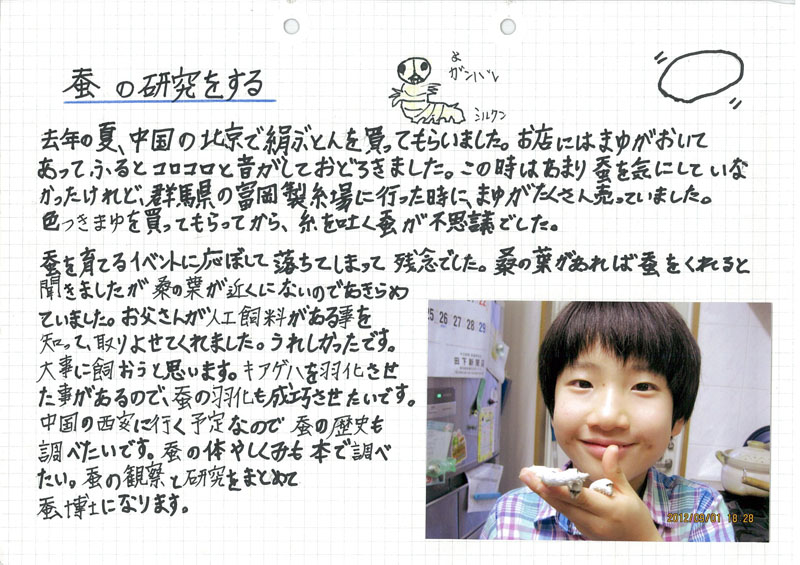 蚕の研究をする
よ
ガンバレ
シルクン
去年の夏、中国の北京で絹ぶとんを買ってもらいました。お店にはまゆがおいて
あってふるとコロコロと音がしておどろきました。この時はあまり蚕を気にしていな
かったけれど、群馬県の富岡製糸場に行った時に、まゆがたくさん売っていました。
色つきまゆを買ってもらってから、糸を吐く蚕が不思議でした。
蚕を育てるイベントに応ぼして落ちてしまって残念でした。桑の葉があれば蚕をくれると
聞きましたが桑の葉が近くにないのであきらめ
ていました。お父さんが人工飼料がある事を
知って、取りよせてくれました。うれしかったです。
大事に飼おうと思います。キアゲハを羽化させ
た事があるので、蚕の羽化も成功させたいです。
中国の西安に行く予定なので蚕の歴史も
調べたいです。蚕の体やしくみも本で調べ
たい。蚕の観察と研究をまとめて
蚕博士になります。
22
25 26 27 28 29
2012/09/01 18:28